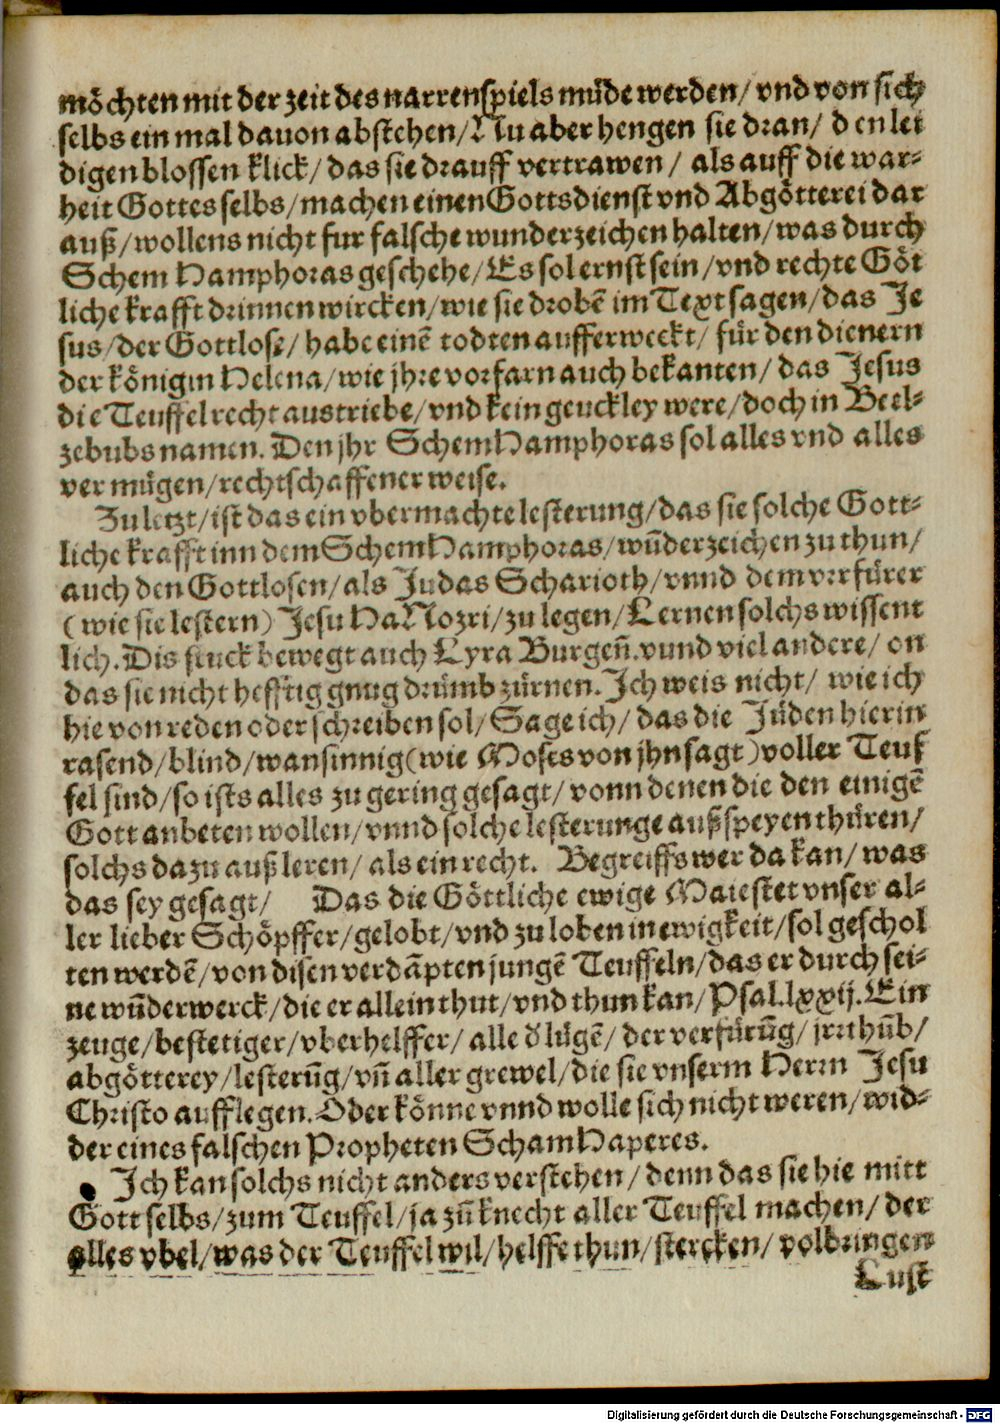 möchten mit der zeit des narrenspiels müde werden/ vnd von sich
selbs ein mal dauon abstehen/ Nu aber hengen sie dran/ den lei
digen blossen klick/ das sie drauff vertrawen/ als auff die war⸗
heit Gottes selbs/ machen einen Gottsdienst vnd Abgötterei dar
auß/ wollens nicht fur falsche wunderzeichen halten/ was durch
Schem Hamphoras geschehe/ Es sol ernst sein/ vnd rechte Göt
liche krafft drinnen wircken/ wie sie drobē im Text sagen/ das Je
sus/ der Gottlose/ habe einē todten aufferweckt/ für den dienern
der königin Helena/ wie jhre vorfarn auch bekanten/ das Jesus
die Teuffel recht austriebe/ vnd kein geuckley were/ doch in Beel⸗
zebubs namen. Den jhr Schem Hamphoras sol alles vnd alles
vermügen/ rechtschaffener weise.
Zu letzt/ ist das ein vbermachte lesterung/ das sie solche Gott⸗
liche krafft inn dem Schem Hamphoras/ wūderzeichen zu thun/
auch den Gottlosen/ als Judas Scharioth/ vnnd dem verfürer
(wie sie lestern) Jesu HaNozri/ zu legen/ Lernen solchs wissent
lich. Dis stuck bewegt auch Lyra Burgen̄. vnnd viel andere/ on
das sie nicht hefftig gnug drümb zürnen. Ich weis nicht/ wie ich
hie von reden oder schreiben sol/ Sage ich/ das die Jüden hierin
rasend/ blind/ wansinnig (wie Moses von jhn sagt) voller Teuf
fel sind/ so ists alles zu gering gesagt/ vonn denen die den einigē
Gott anbeten wollen/ vnnd solche lesterunge außspeyen thüren/
solchs dazu auß leren/ als ein recht. Begreiffs wer da kan/ was
das sey gesagt/ Das die Göttliche ewige Maiestet vnser al⸗
ler lieber Schöpffer/ gelobt/ vnd zu loben in ewigkeit/ sol geschol
ten werdē/ von disen verdāpten jungē Teuffeln/ das er durch sei⸗
ne wūderwerck/ die er allein thut/ vnd thun kan/ Psal. lxxij. Ein
zeuge/ bestetiger/ vberhelffer/ alle d̕ lügē/ der verfürūg/ jrrthūb/
abgötterey/ lesterūg/ vn̄ aller grewel/ die sie vnserm Herrn Jesu
Christo aufflegen. Oder könne vnnd wolle sich nicht weren/ wid⸗
der eines falschen Propheten Scham Haperes.
Ich kan solchs nicht anders verstehen/ denn das sie hie mitt
Gott selbs/ zum Teuffel/ ja zū knecht aller Teuffel machen/ der
alles vbel/ was der Teuffel wil/ helffe thun/ stercken/ volbringen
Lust
Digitalisierung gefördert durch die Deutsche Forschungsgemeinschaft - DFG